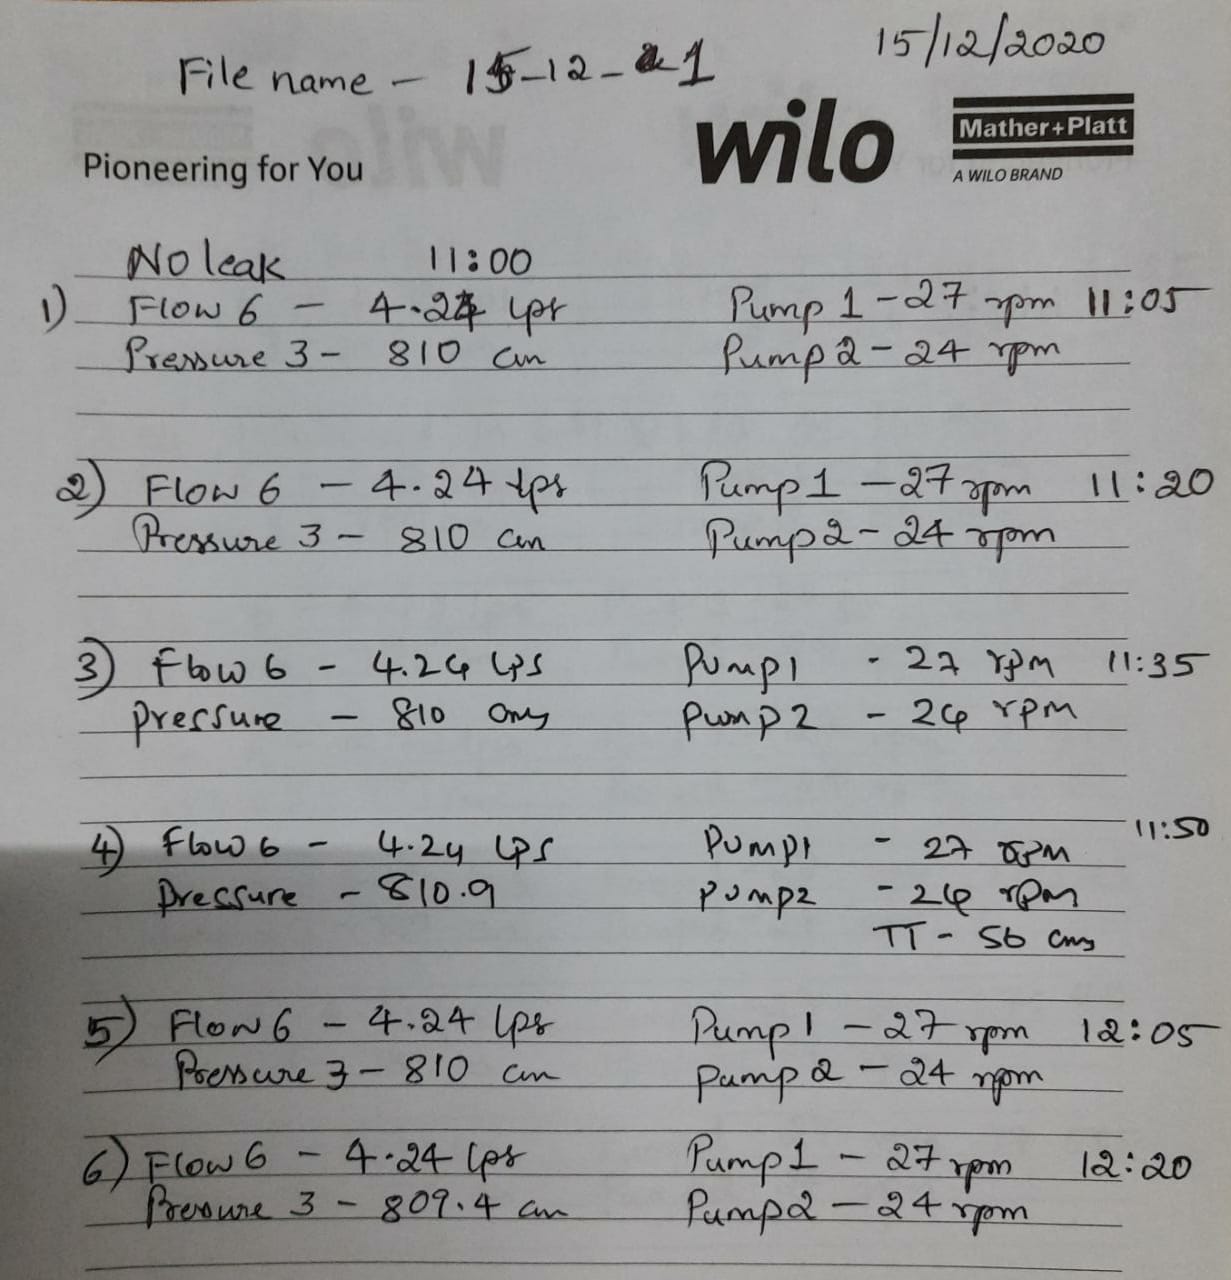 15/12/2020
File name - 15-12-1
wilo
Mather+Platt
A WILO BRAND
Pioneering for You
No leak 11:00
1) Flow 6 - 4.24 lps Pump 1 - 27 rpm 11:05
Pressure 3 - 810 cm Pump 2 - 24 rpm
2) Flow 6 - 4.24 lps Pump 1 - 27 rpm 11:20
Pressure 3 - 810 cm Pump 2 - 24 rpm
3) Flow 6 - 4.24 LPS Pump 1 - 27 rpm 11:35
Pressure - 810 cms Pump 2 - 24 rpm
4) Flow 6 - 4.24 LPS Pump 1 - 27 rpm 11:50
Pressure - 810.9 Pump 2 - 24 rpm
TT - 56 cms
5) Flow 6 - 4.24 lps Pump 1 - 27 rpm 12:05
Pressure 3 - 810 cm Pump 2 - 24 rpm
6) Flow 6 - 4.24 lps Pump 1 - 27 rpm 12:20
Pressure 3 - 809.4 cm Pump 2 - 24 rpm